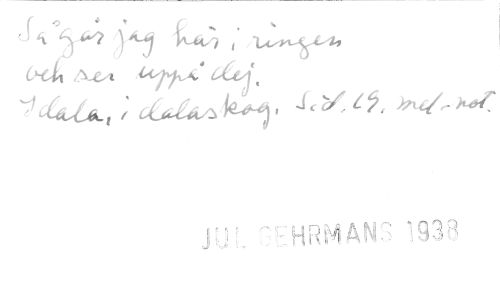 Så går jag här i ringen
och ser uppå dej.
I dala, i dalaskog. Sid. 19. md-not.
JUL GEHRMANS 1938